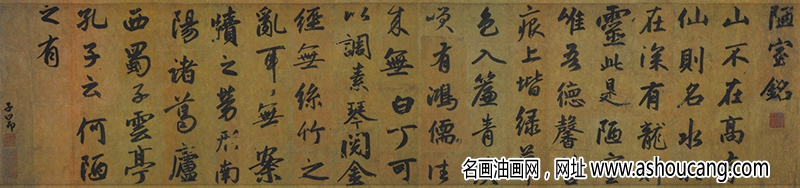 陋室銘
山不在高有
仙則名水不
在深有龍則
靈此是陋室
惟吾德馨苔
痕上堦綠草
色入簾青談
咲有鴻儒往
来無白丁可
以調素琴閱金
經無絲竹之
亂耳〻無案
牘之勞形南
陽諸葛廬
西蜀子雲亭
孔子云何陋
之有
子昂
名画油画网，网址 www.ashoucang.com